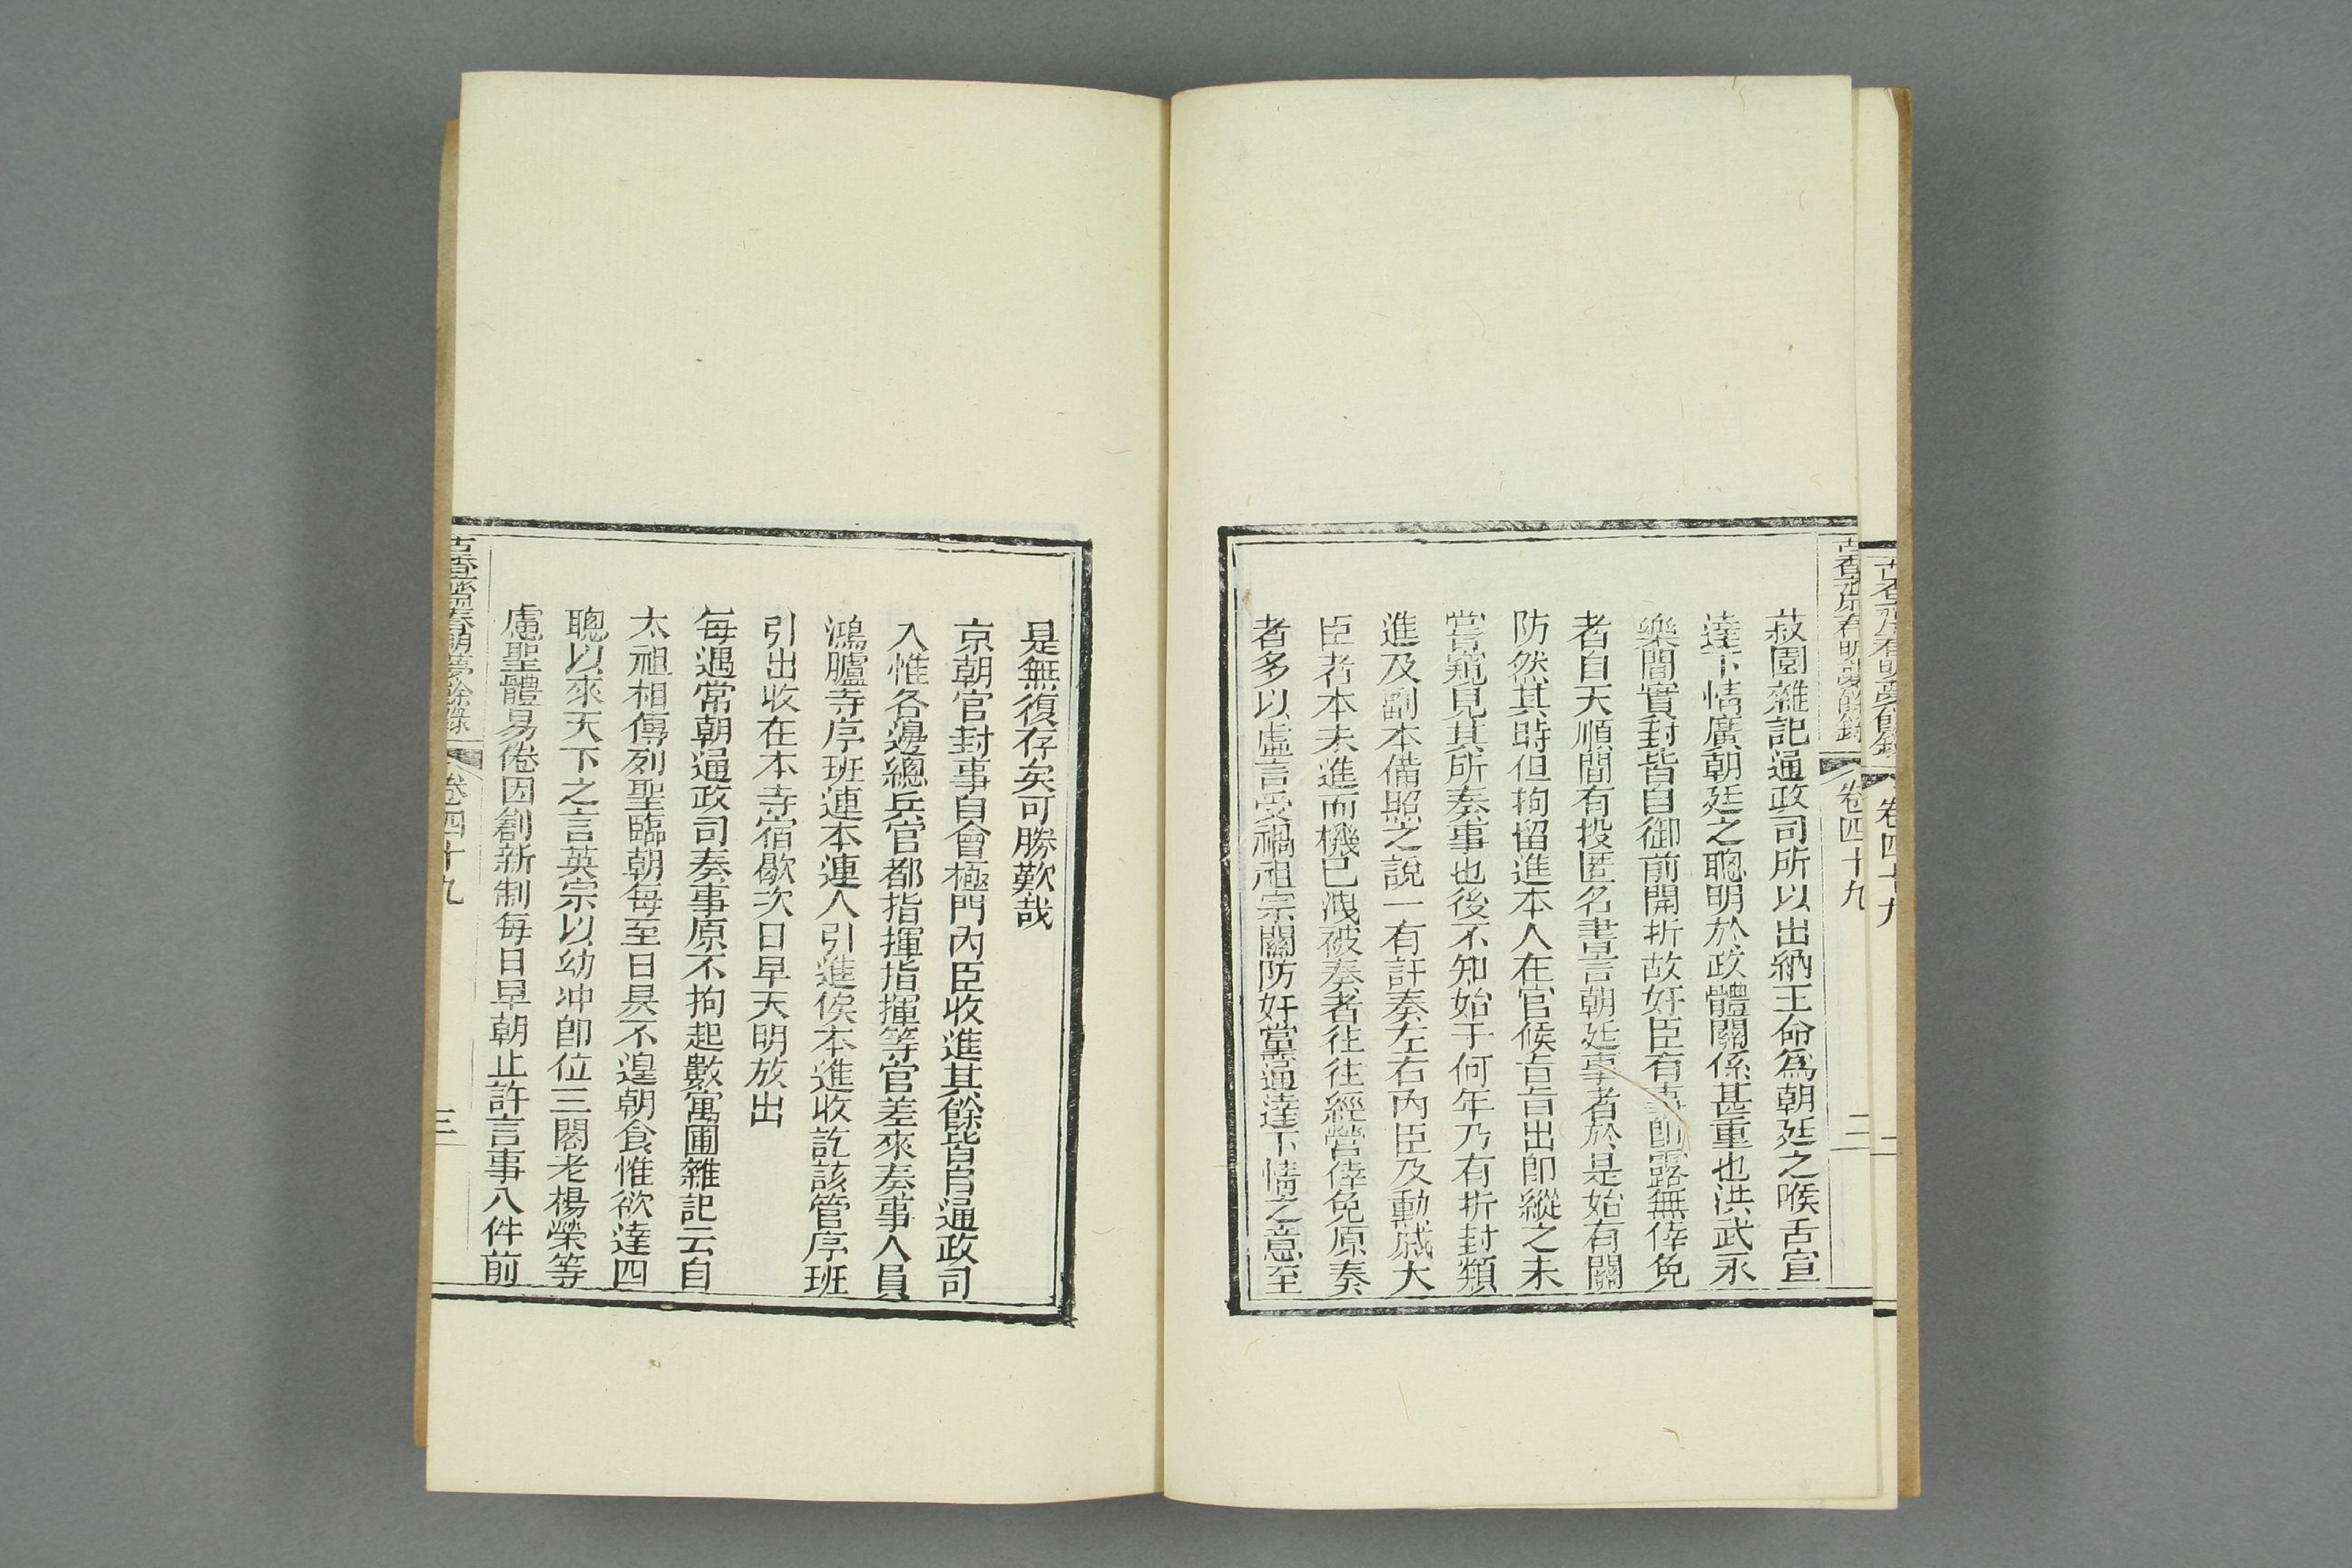 古香齋春明夢餘錄
卷四十九
二
菽園雜記通政司所以出納王命爲朝廷之喉舌宣
達下情廣朝廷之聰明於政體關係甚重也洪武永
樂間實封皆自御前開折故奸臣有事卽露無倖免
者自天順間有投匿名書言朝廷事者於是始有關
防然其時但拘留進本人在官候吉旨出卽縱之未
嘗窺見其所奏事也後不知始于何年乃有折封類
進及副本備照之說一有訐奏左右內臣及勳戚大
臣者本未進而機已洩被奏者往往經營倖免原奏
者多以虛言受禍祖宗關防奸黨通達下情之意至
是無復存矣可勝歎哉
京朝官封事自會極門內臣收進其餘皆自通政司
入惟各邊總兵官都指揮指揮等官差來奏事人員
鴻臚寺序班連本連人引進俟本進收訖該管序班
引出收在本寺宿歇次日早天明放出
每遇常朝通政司奏事原不拘起數寓圃雜記云自
太祖相傳列聖臨朝每至日昃不遑朝食惟欲達四
聰以來天下之言英宗以幼冲卽位三閣老楊榮等
慮聖體易倦因創新制每日早朝止許言事八件前
古香齋春明夢餘錄
卷四十九
三